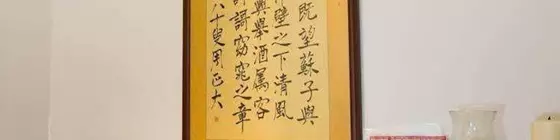 既望蘇子與
赤壁之下清風
興舉酒属客
詩誦窈窕之章
八十叟周正大